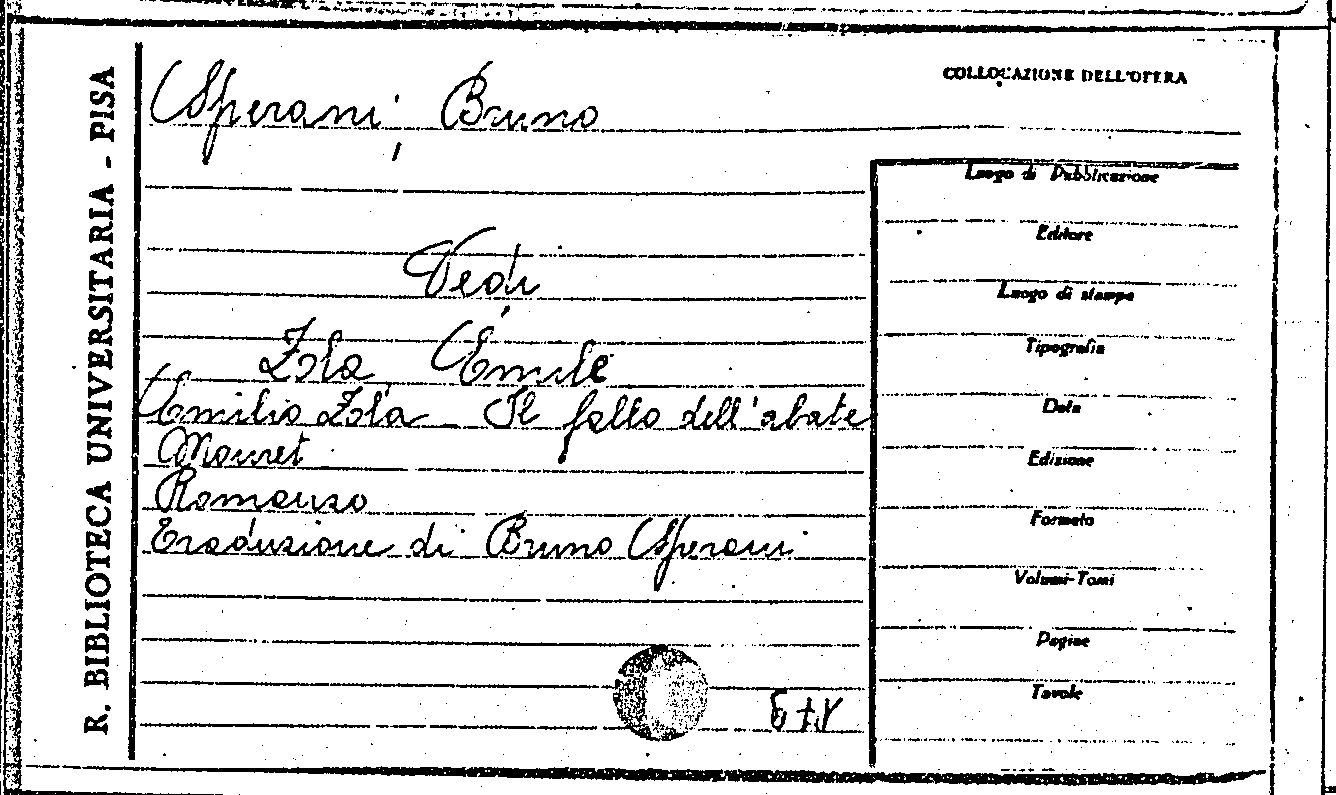 R. BIBLIOTECA UNIVERSITARIA - PISA
Sperani, Bruno
COLLOCAZIONE DELL'OPERA
Vedi
Zola, Émile
Emilio Zola - Il fallo dell'abate
Mouret
Romanzo
Traduzione di Bruno Sperani
Luogo di Pubblicazione
Editore
Luogo di stampa
Tipografia
Data
Edizione
Formato
Volumi-Tomi
Pagine
Tavole